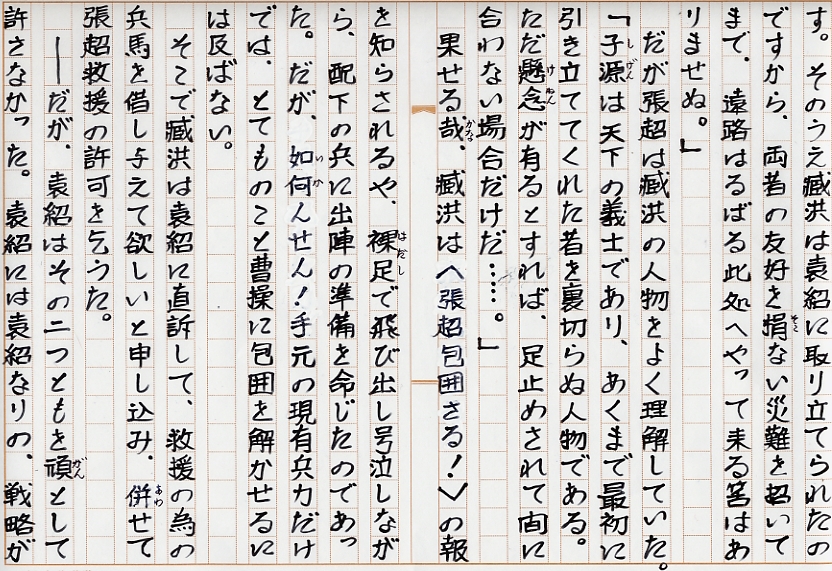 す。そのうえ臧洪は袁紹に取り立てられたの
ですから、両者の友好を損ない災難を招いて
まで、遠路はるばる此処へやって来る筈はあ
りませぬ。」
だが張超は臧洪の人物をよく理解していた。
「子源は天下の義士であり、あくまで最初に
引き立ててくれた者を裏切らぬ人物である。
ただ懸念が有るとすれば、足止めされて間に
合わない場合だけだ……。」
果せる哉、臧洪は〈張超包囲さる!〉の報
を知らされるや、裸足で飛び出し号泣しなが
ら、配下の兵に出陣の準備を命じたのであっ
た。だが、如何んせん!手元の現有兵力だけ
では、とてものこと曹操に包囲を解かせるに
は反ばない。
そこで臧洪は袁紹に直訴して、救援の為の
兵馬を借し与えて欲しいと申し込み、併せて
張超救援の許可を乞うた。
──だが、袁紹はその二つともを頑として
許さなかった。袁紹には袁紹なりの、戦略が